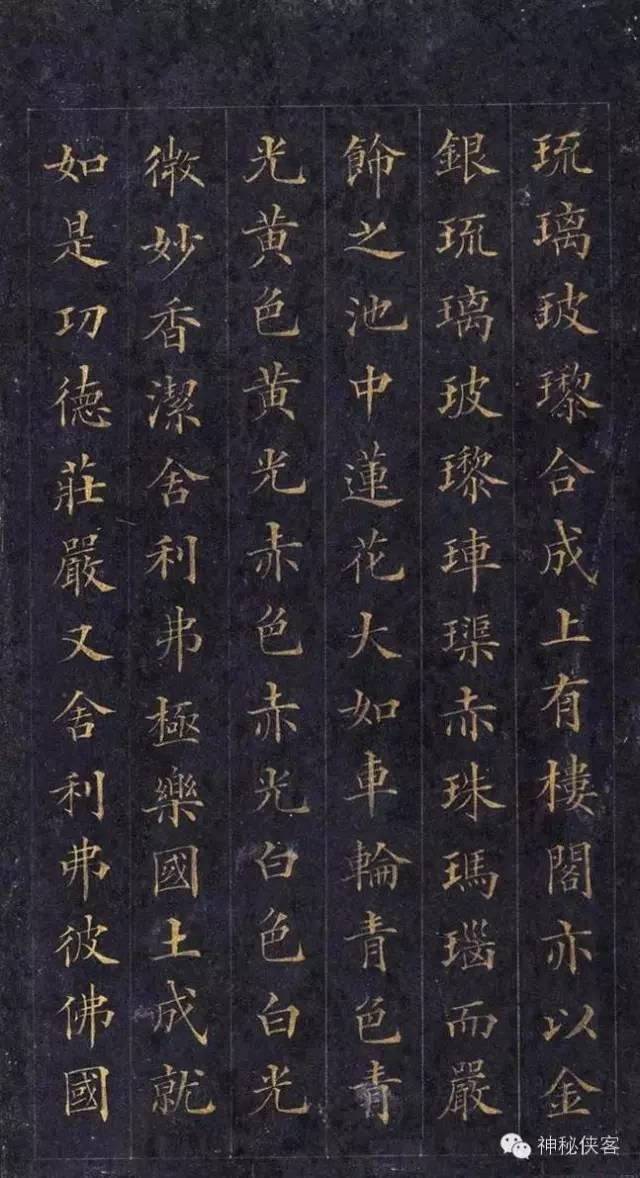 琉璃玻瓈合成上有樓閣亦以金
銀琉璃玻瓈琿璖赤珠瑪瑙而嚴
飾之池中蓮花大如車輪青色青
光黄色黄光赤色赤光白色白光
微妙香潔舍利弗極樂國土成就
如是功德莊嚴又舍利弗彼佛國
神秘侠客